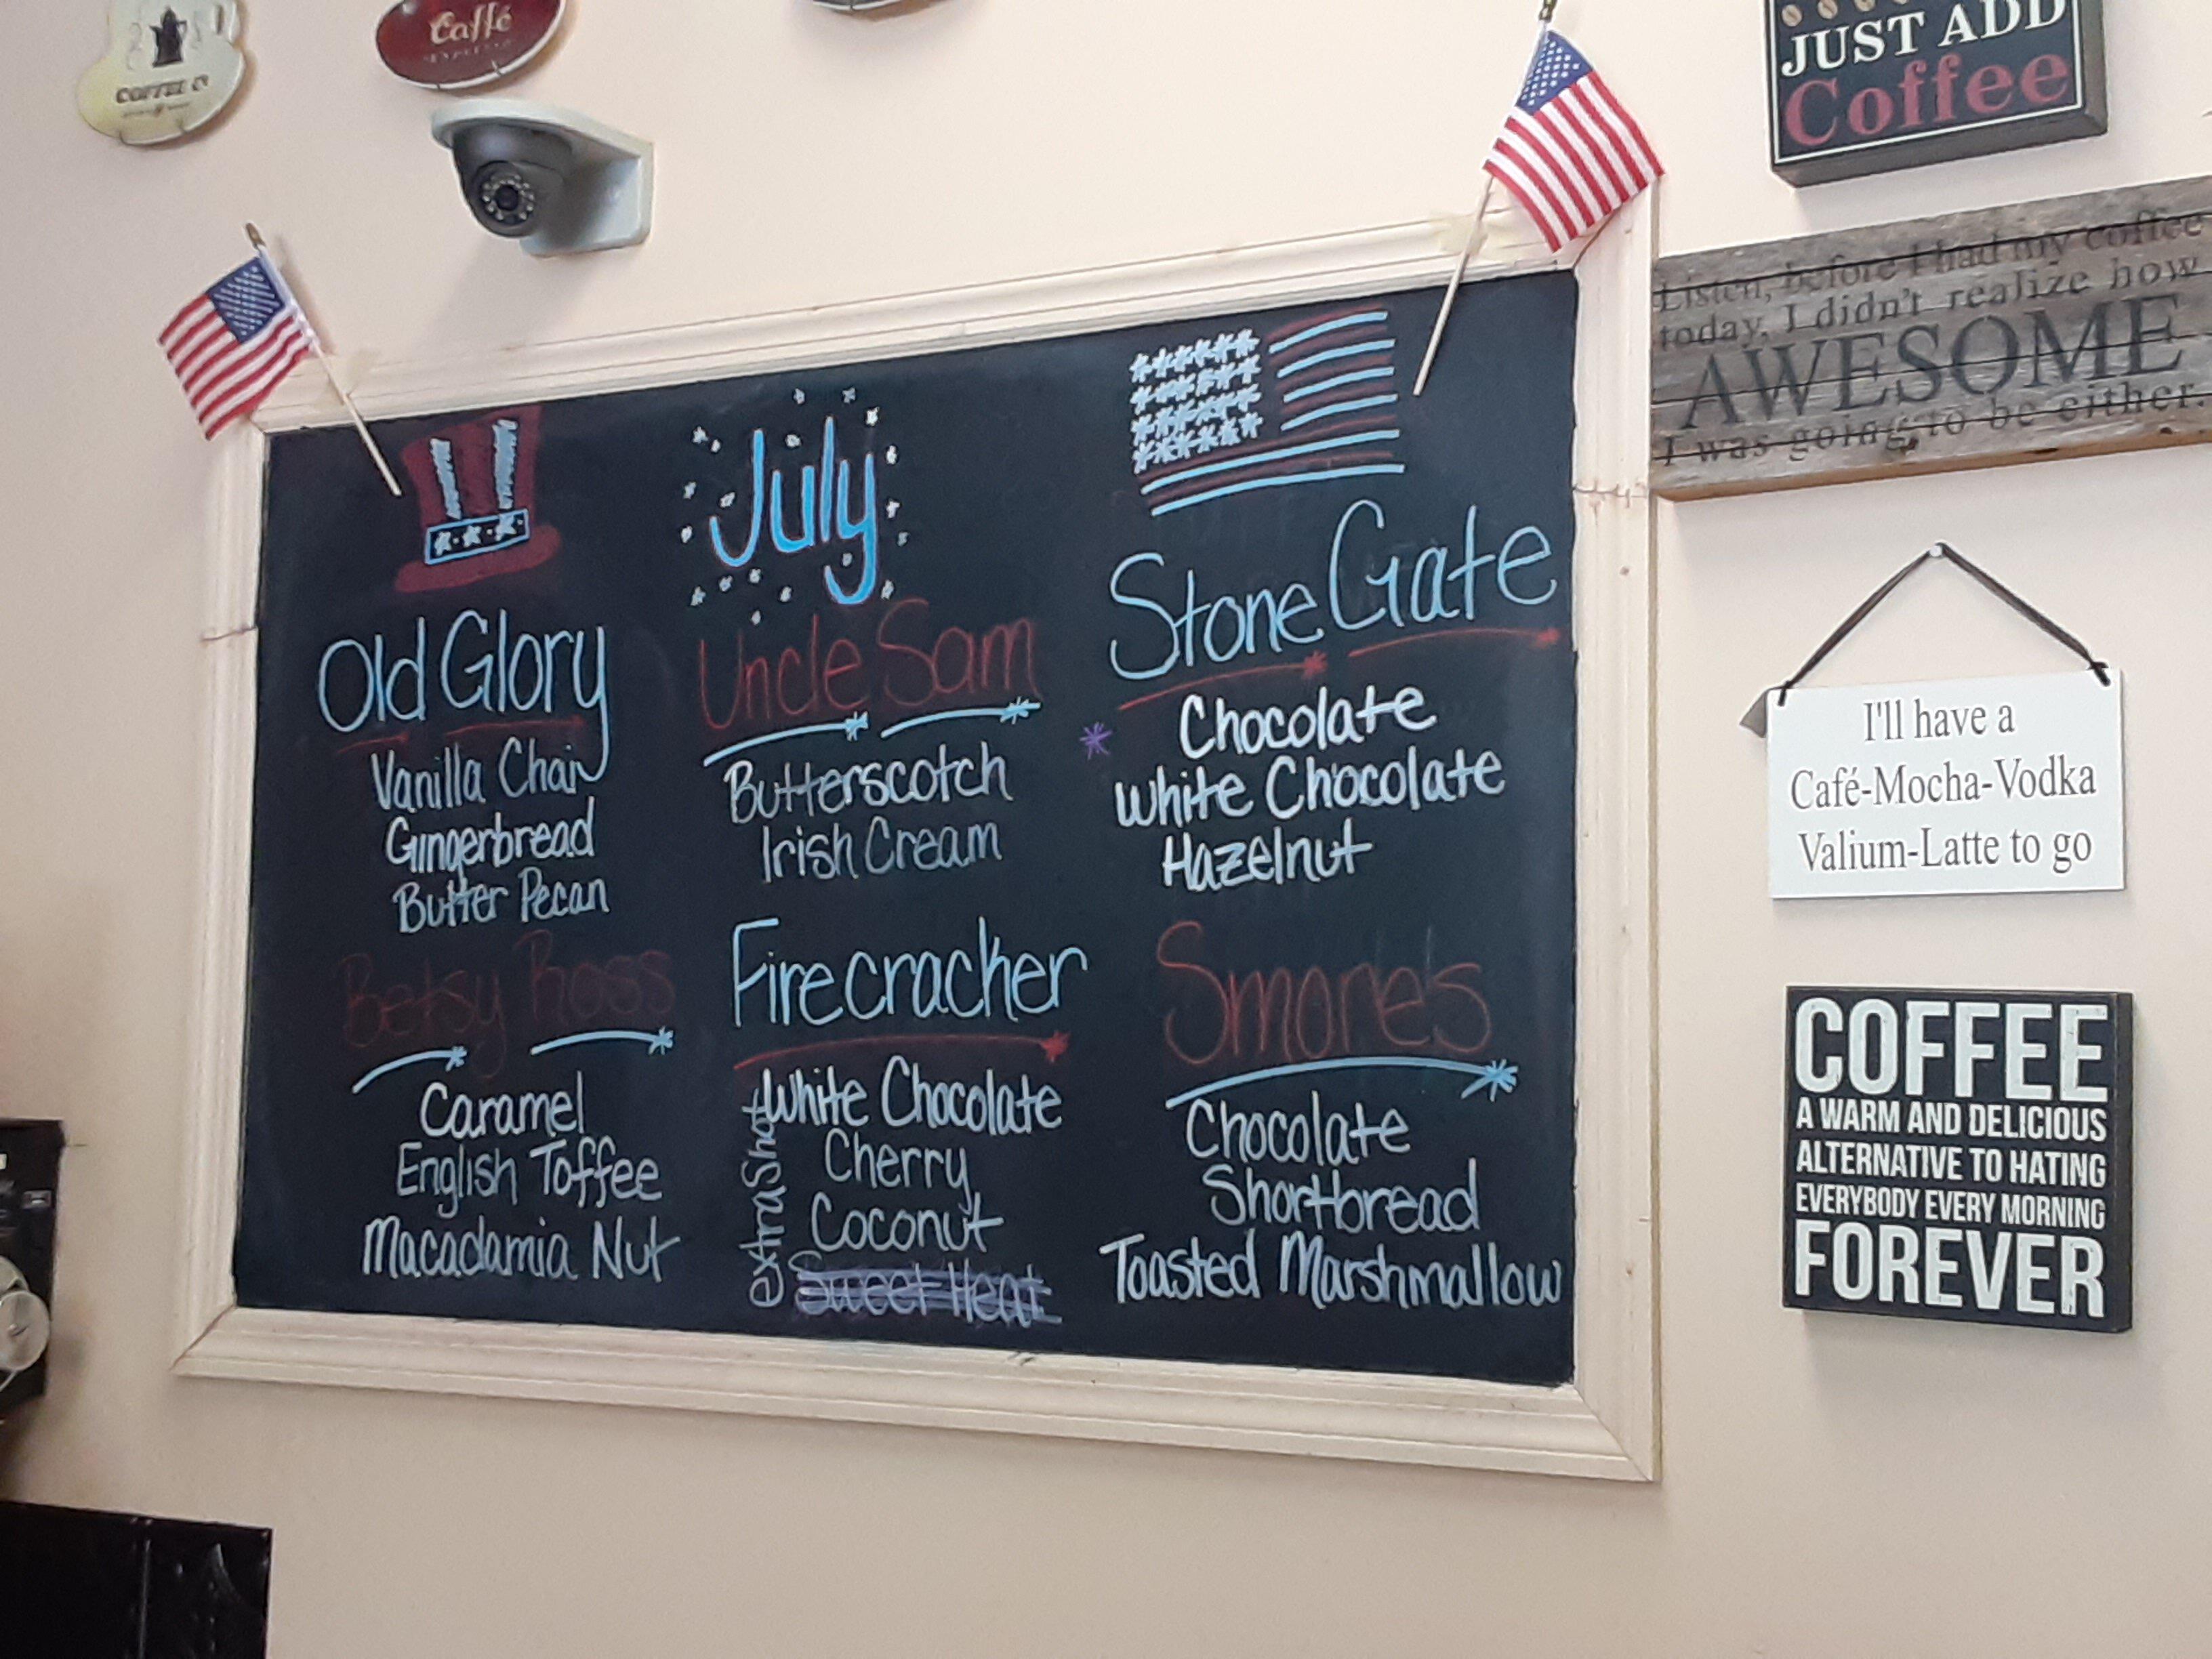 COFFEE CO
Caffé
JUST ADD
Coffee
Listen, before I had my coffee
today, I didn't realize how
AWESOME
I was going to be either.
I'll have a
Café-Mocha-Vodka
Valium-Latte to go
COFFEE
A WARM AND DELICIOUS
ALTERNATIVE TO HATING
EVERYBODY EVERY MORNING
FOREVER
July
Old Glory
Vanilla Chai
Gingerbread
Butter Pecan
Betsy Ross
Caramel
English Toffee
Macadamia Nut
Uncle Sam
Butterscotch
Irish Cream
Firecracker
White Chocolate
Cherry
Coconut
Sweet Heat
extra Shot
Stone Gate
Chocolate
White Chocolate
Hazelnut
Smore's
Chocolate
Shortbread
Toasted Marshmallow